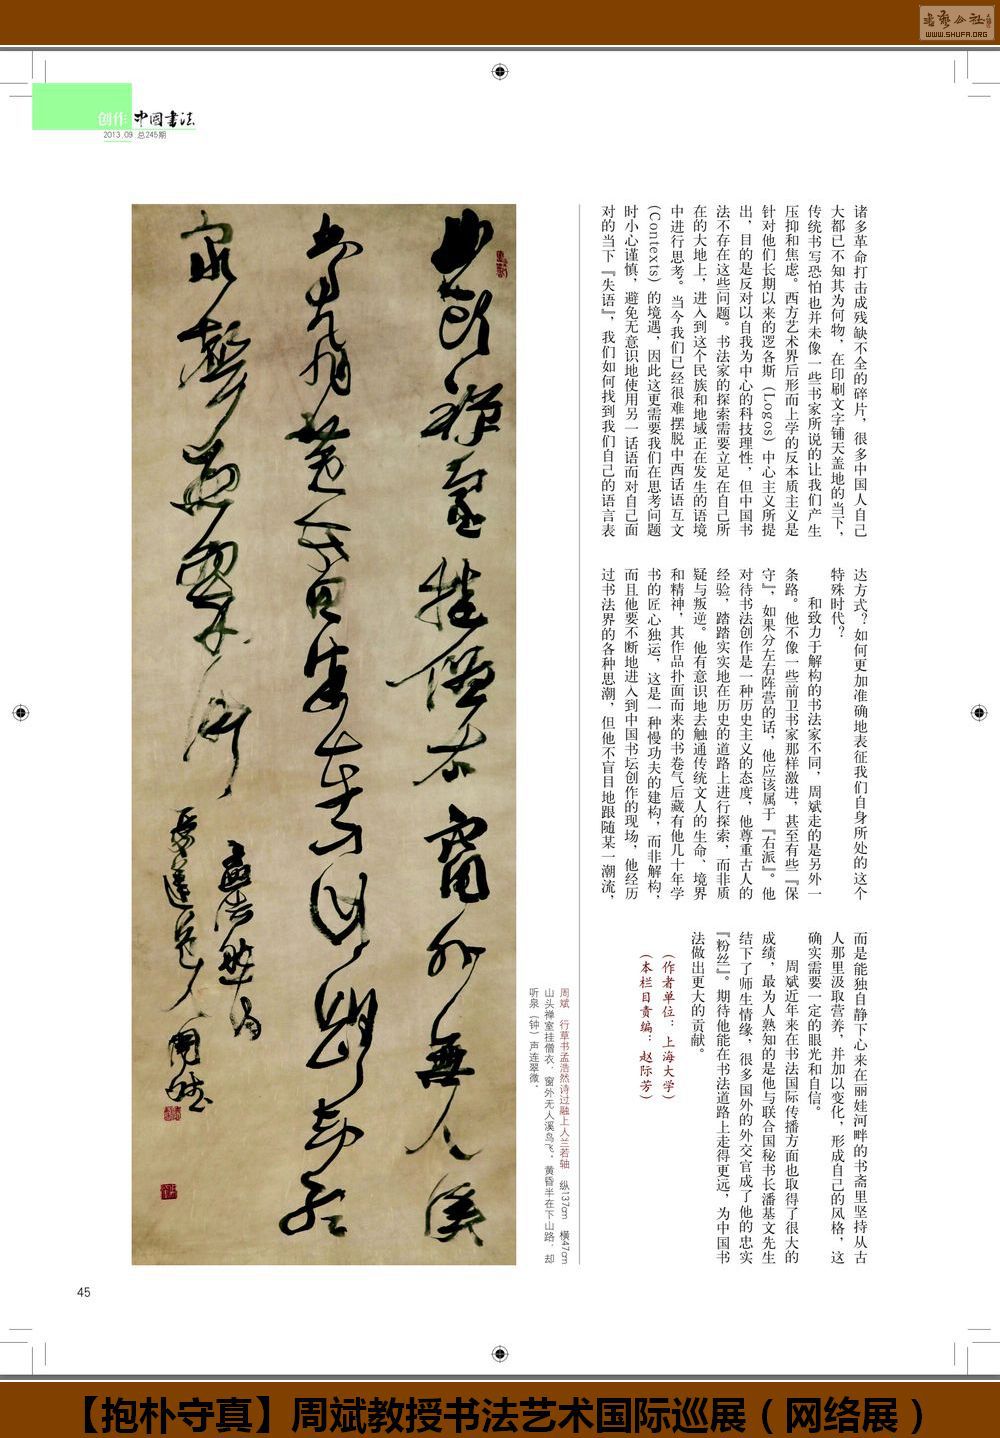 书艺公社
WWW.SHUFA.ORG
创作 中国书法
2013.09 总245期
诸多革命打击成残缺不全的碎片，很多中国人自己
大都已不知其为何物，在印刷文字铺天盖地的当下，
传统书写恐怕也并未像一些书家所说的让我们产生
压抑和焦虑。西方艺术界后形而上学的反本质主义是
针对他们长期以来的逻各斯（Logos）中心主义所提
出，目的是反对以自我为中心的科技理性，但中国书
法不存在这些问题。书法家的探索需要立足在自己所
在的大地上，进入到这个民族和地域正在发生的语境
中进行思考。当今我们已经很难摆脱中西话语互文
（Contexts）的境遇，因此这更需要我们在思考问题
时小心谨慎，避免无意识地使用另一话语而对自己面
对的当下『失语』，我们如何找到我们自己的语言表
达方式？如何更加准确地表征我们自身所处的这个
特殊时代？
和致力于解构的书法家不同，周斌走的是另外一
条路。他不像一些前卫书家那样激进，甚至有些『保
守』，如果分左右阵营的话，他应该属于『右派』。他
对待书法创作是一种历史主义的态度，他尊重古人的
经验，踏踏实实地在历史的道路上进行探索，而非质
疑与叛逆。他有意识地去触通传统文人的生命、境界
和精神，其作品扑面而来的书卷气后藏有他几十年学
书的匠心独运，这是一种慢功夫的建构，而非解构，
而且他要不断地进入到中国书坛创作的现场，他经历
过书法界的各种思潮，但他不盲目地跟随某一潮流，
而是能独自静下心来在丽娃河畔的书斋里坚持从古
人那里汲取营养，并加以变化，形成自己的风格，这
确实需要一定的眼光和自信。
周斌近年来在书法国际传播方面也取得了很大的
成绩，最为人熟知的是他与联合国秘书长潘基文先生
结下了师生情缘，很多国外的外交官成了他的忠实
『粉丝』。期待他能在书法道路上走得更远，为中国书
法做出更大的贡献。
（作者单位：上海大学）
（本栏目责编：赵际芳）
周斌 行草书孟浩然诗过融上人兰若轴 纵137cm 横47cm
山头禅室挂僧衣，窗外无人溪鸟飞。黄昏半在下山路，却
听泉（钟）声连翠微。
山头禅室挂僧衣窗外无人溪
鸟飞黄昏半在下山路却听
泉声连翠微
孟浩然诗
周斌
45
【抱朴守真】周斌教授书法艺术国际巡展（网络展）